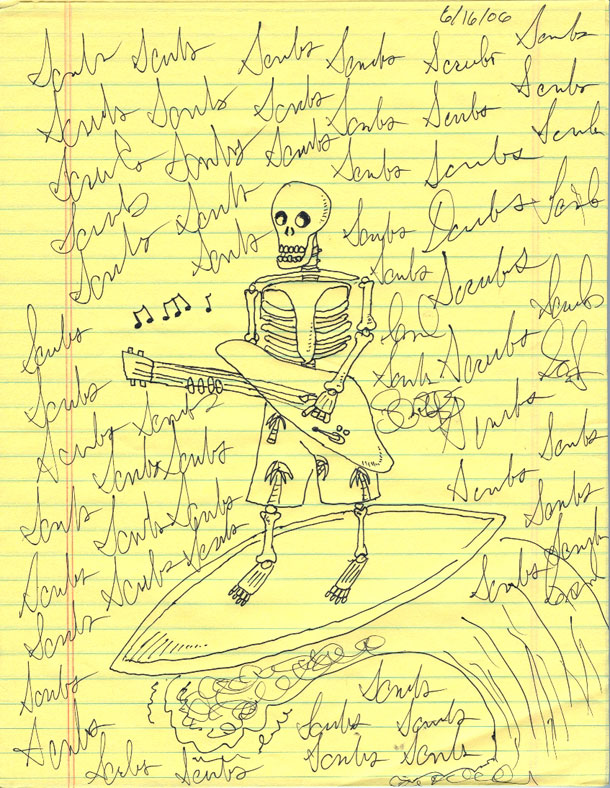 6/16/06
Scrubs Scrubs Scrubs Scrubs Scrubs Scrubs
Scrubs Scrubs Scrubs Scrubs Scrubs Scrubs
Scrubs Scrubs Scrubs Scrubs Scrubs Scrubs
Scrubs Scrubs Scrubs Scrubs Scrubs
Scrubs Scrubs Scrubs
Scrubs Scrubs
Scrubs
Scrubs Scrubs Scrubs
Scrubs Scrubs Scrubs
Scrubs Scrubs Scrubs Scrubs
Scrubs Scrubs Scrubs Scrubs
Scrubs Scrubs Scrubs Scrubs Scrubs
Scrubs
Scrubs Scrubs
Scrubs Scrubs Scrubs
Scrubs Scrubs Scrubs Scrubs